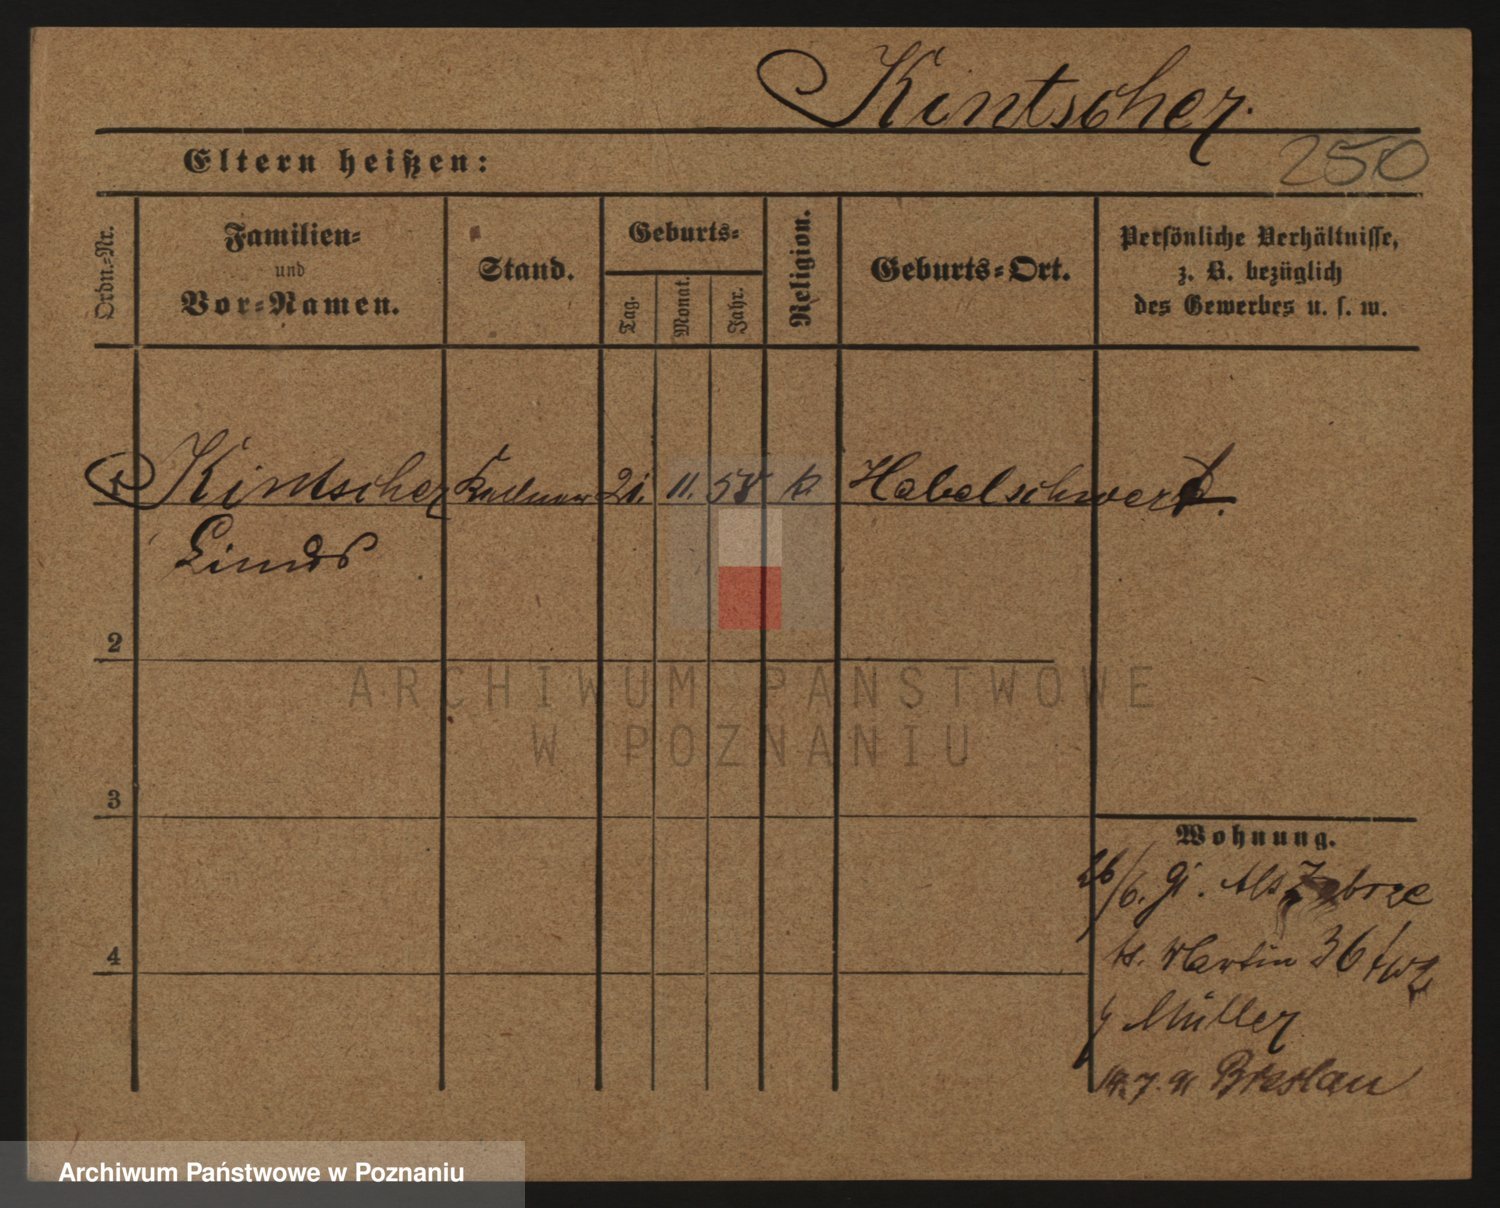 Kintscher.
250
Eltern heißen:
Ordn.-Nr.
Familien-
und
Vor-Namen.
Stand.
Geburts-
Tag.
Monat.
Jahr.
Religion.
Geburts-Ort.
Persönliche Verhältnisse,
z. B. bezüglich
des Gewerbes u. s. w.
1 Kintscher Kellner 21. 11. 58 k. Habelschwerdt.
2
ARCHIWUM PAŃSTWOWE
W POZNANIU
3
Wohnung.
26/6. 91. Alt Zabrze
St. Martin 36
Müller
7. 91 Breslau
4
Archiwum Państwowe w Poznaniu